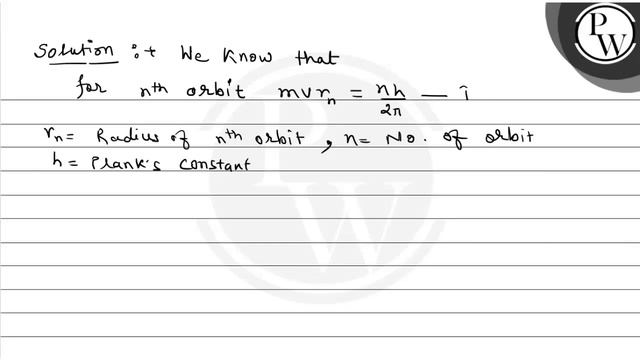 Solution :→ We know that
for nth orbit mvrₙ = nh/2π — i
rₙ = Radius of nth orbit, n = No. of orbit
h = Plank's constant
PW